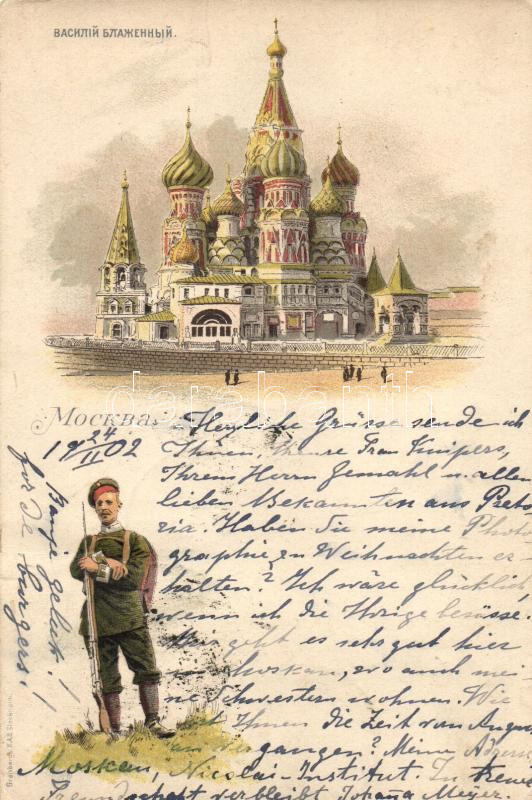 ВАСИЛІЙ БЛАЖЕННЫЙ.
Москва.
19 24/II 02
Herzliche Grüsse sende ich
Ihnen, theure Frau Kuipers,
Ihrem Herrn Gemahl u. allen
lieben Bekannten aus Preto-
ria. Haben Sie meine Photo-
graphie zu Weihnachten er-
halten? Ich wäre glücklich
wenn ich die Ihrige besässe.
Mir geht es sehr gut hier
in Moskau, wo auch mei-
ne Schwestern wohnen. Wie
ist Ihnen die Zeit von August
an vergangen? Meine Adresse
Moskau, Nicolai-Institut. In treuer
Freundschaft verbleibt Johanna Meyer.
geluk!
for De
burgers!
bararbanth